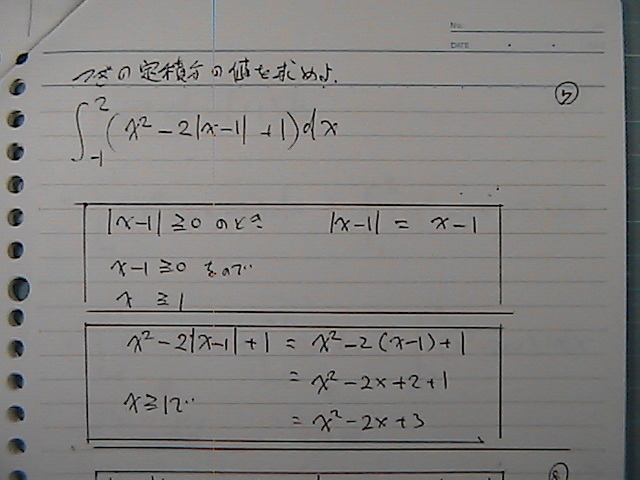 No.
DATE
つぎの定積分の値を求めよ.
㋒
∫₋₁² (x² − 2|x−1| + 1) dx
|x−1| ≧ 0 のとき |x−1| = x−1
x−1 ≧ 0 なので
x ≧ 1
x² − 2|x−1| + 1 = x² − 2(x−1) + 1
= x² − 2x + 2 + 1
x ≧ 1で
= x² − 2x + 3